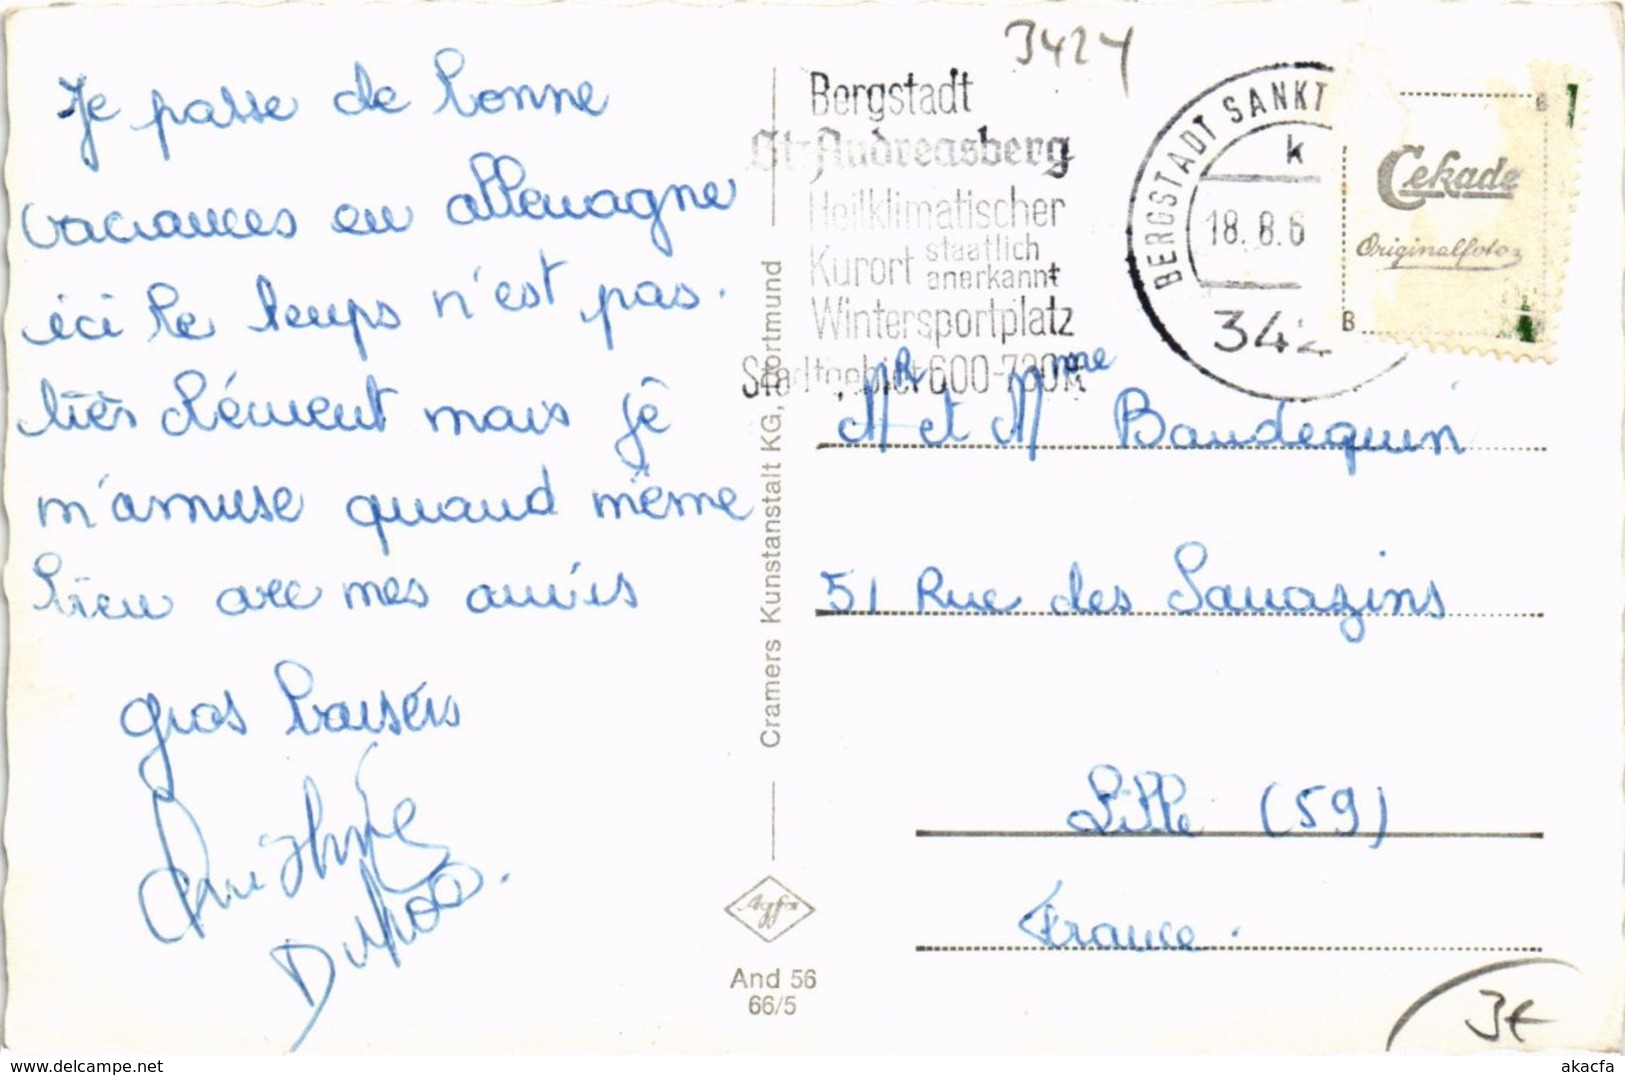 Je passe de bonne
vacances en allemagne
ici le temps n'est pas.
très clément mais je
m'amuse quand même
bien avec mes amies
gros baisers
3424
Bergstadt
St. Andreasberg
Heilklimatischer
Kurort staatlich anerkannt
Wintersportplatz
Stadtgebiet 600-730m
BERGSTADT SANKT
k
18.8.6
342
B
Cekade
Originalfoto
B
MR et Mme Baudequin
51 Rue des Sarrazins
Lille (59)
France.
Cramers Kunstanstalt KG, Dortmund
Agfa
And 56
66/5
3€
akacfa